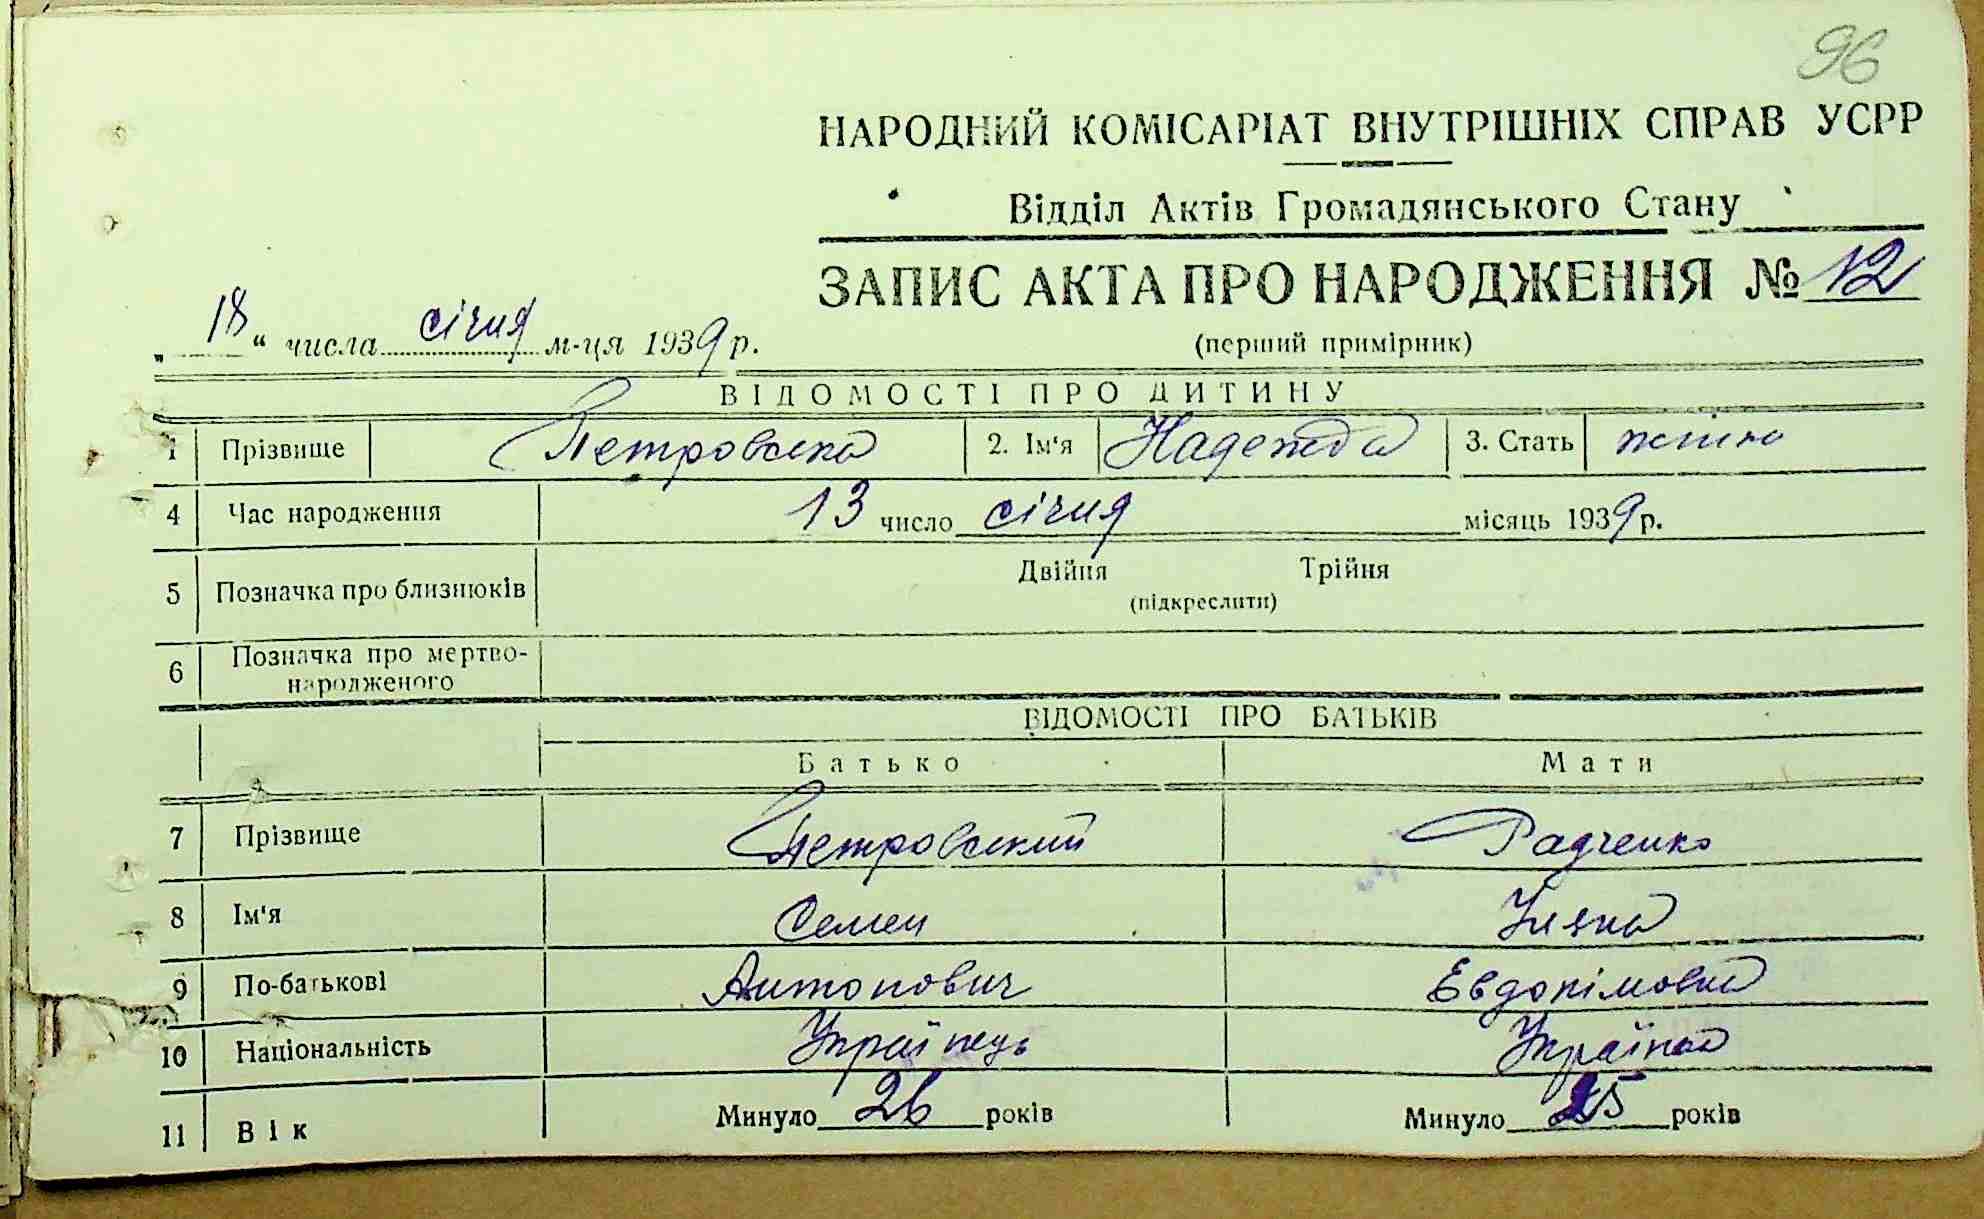 96
НАРОДНИЙ КОМІСАРІАТ ВНУТРІШНІХ СПРАВ УСРР
Відділ Актів Громадянського Стану
ЗАПИС АКТА ПРО НАРОДЖЕННЯ № 12
„18“ числа січня м-ця 1939 р.
(перший примірник)
ВІДОМОСТІ ПРО ДИТИНУ
1 Прізвище Петровська 2. Ім'я Надежда 3. Стать
4 Час народження 13 число січня місяць 1939 р.
5 Позначка про близнюків Двійня Трійня
(підкреслити)
6 Позначка про мертво-
народженого
ВІДОМОСТІ ПРО БАТЬКІВ
Батько Мати
7 Прізвище Петровский Радченко
8 Ім'я Семен
9 По-батькові Антонович Евдокімовна
10 Національність Українець Українка
11 Вік Минуло 26 років Минуло 25 років